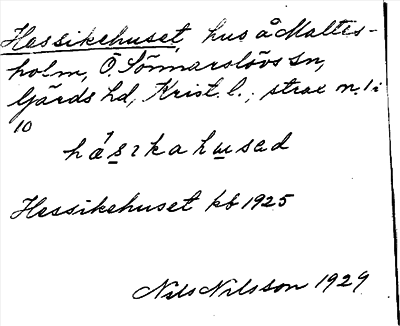 Hessikehuset, hus å Maltes-
holm, Ö. Sönnarslövs sn,
Gärds hd, Krist. l.; strax n. 1 i
10
hàsikahusad
Hessikehuset kb 1925
Nils Nilsson 1929